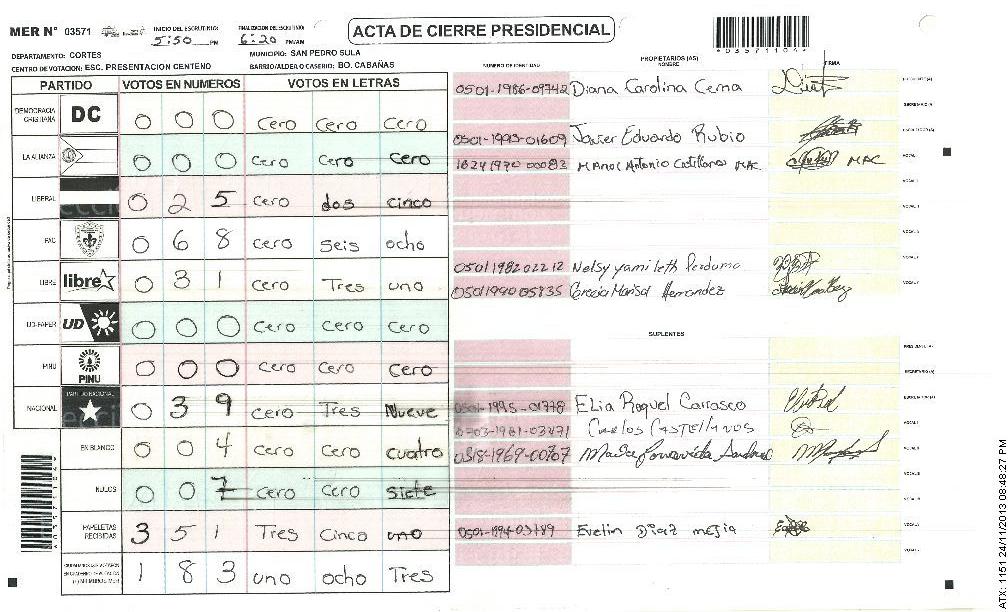 MER N° 03571
INICIO DEL ESCRUTINIO:
5:50 PM
FINALIZACION DEL ESCRUTINIO:
6:20 PM/AM
ACTA DE CIERRE PRESIDENCIAL
DEPARTAMENTO: CORTES
MUNICIPIO: SAN PEDRO SULA
CENTRO DE VOTACION: ESC. PRESENTACION CENTENO
BARRIO/ALDEA O CASERIO: BO. CABAÑAS
PARTIDO VOTOS EN NUMEROS VOTOS EN LETRAS
DEMOCRACIA CRISTIANA DC 0 0 0 Cero Cero Cero
LA ALIANZA 0 0 0 Cero Cero Cero
LIBERAL 0 2 5 Cero dos cinco
PAC 0 6 8 Cero seis ocho
LIBRE libre 0 3 1 Cero Tres uno
UD-FAPER UD 0 0 0 Cero Cero Cero
PINU PINU 0 0 0 Cero Cero Cero
NACIONAL PARTIDO NACIONAL 0 3 9 cero Tres Nueve
EN BLANCO 0 0 4 Cero Cero cuatro
NULOS 0 0 7 Cero cero siete
PAPELETAS RECIBIDAS 3 5 1 Tres Cinco uno
1 8 3 uno ocho Tres
NUMERO DE IDENTIDAD
PROPIETARIOS (AS)
NOMBRE
FIRMA
0501-1986-09742 Diana Carolina Cerna
0501-1993-01609 Javier Eduardo Rubio
Antonio MAC. MAC
0501198202212 Nelsy yamileth Perdomo
0501199005735 Grecia Marisol Hernandez
SUPLENTES
0501-1995-01778 Elia Raquel Carrasco
0703-1981-03471 Carlos Castellanos
Evelin Diaz mejia
ATX: 1151 24/11/2013 08:48:27 PM